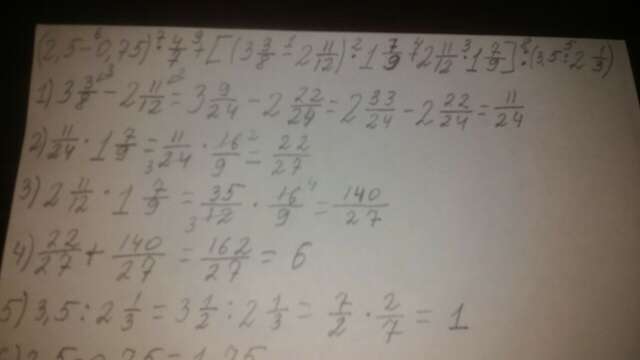 (2,5-0,75)·4/7+[(3 3/8-2 11/12)·1 7/9+2 11/12·1 7/9]:(3,5:2 1/3)
1) 3 3/8 - 2 11/12 = 3 9/24 - 2 22/24 = 2 33/24 - 2 22/24 = 11/24
2) 11/24 · 1 7/9 = 11/24 · 16/9 = 22/27
3) 2 11/12 · 1 7/9 = 35/12 · 16/9 = 140/27
4) 22/27 + 140/27 = 162/27 = 6
5) 3,5 : 2 1/3 = 3 1/2 : 2 1/3 = 7/2 · 2/7 = 1